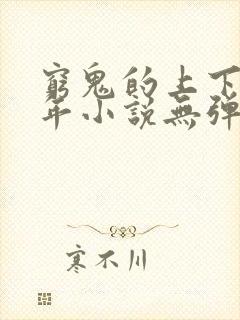 窮鬼的上下
年小說無彈
寒不川